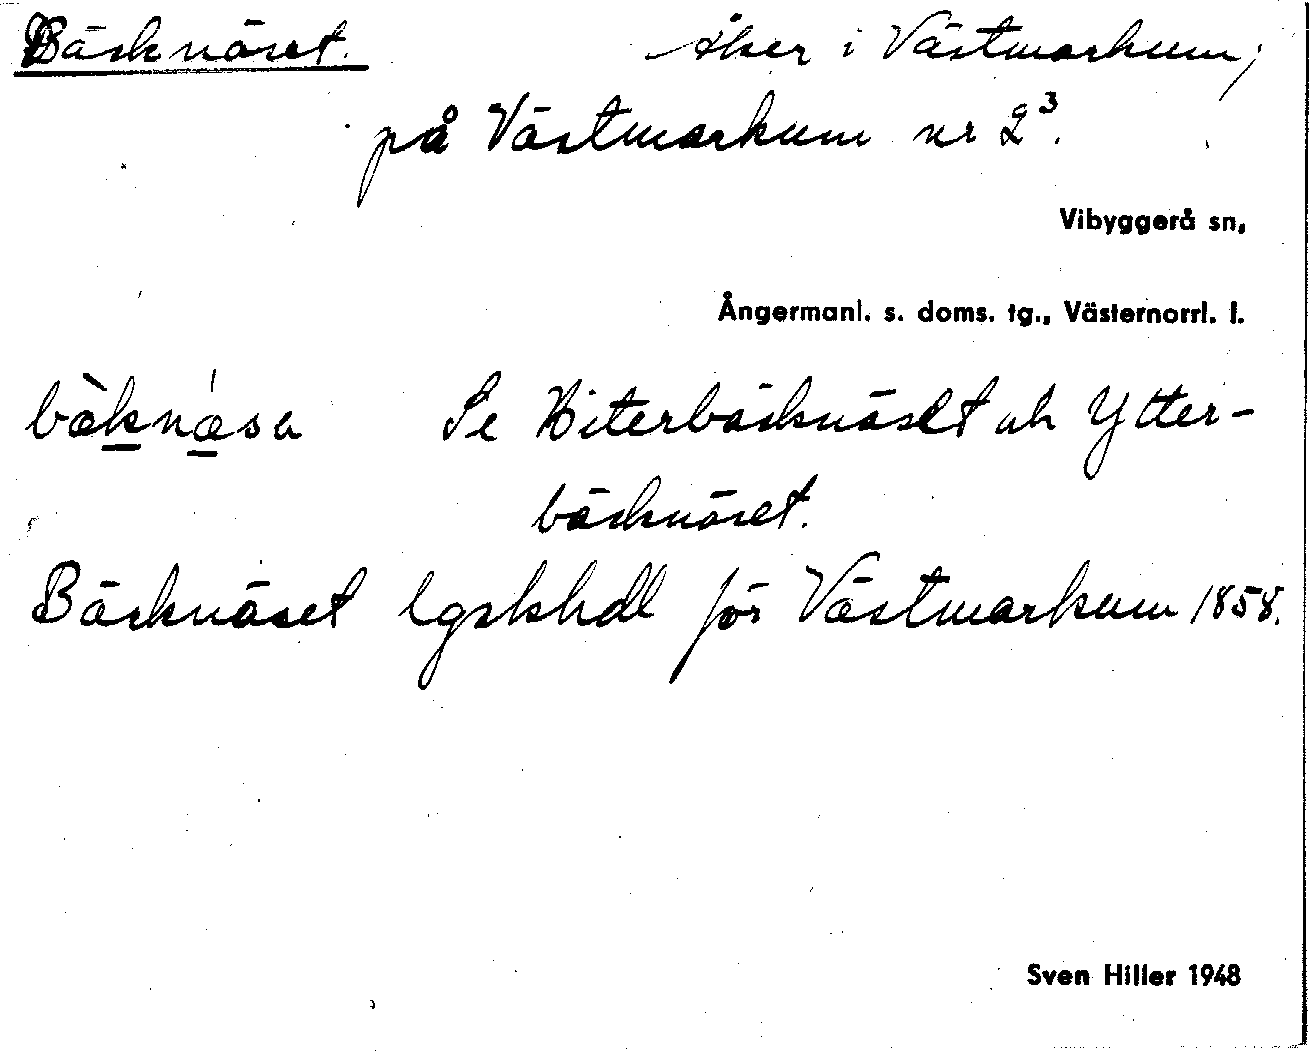 Bäcknäset. åker i Västmarkum;
på Västmarkum nr 2³.
Vibyggerå sn,
Ångermanl. s. doms. tg., Västernorrl. l.
bæ̀knæ̀sa Se Hiterbäcknäset och Ytter-
bäcknäset.
Bäcknäset lgskhdl för Västmarkum 1858.
Sven Hiller 1948